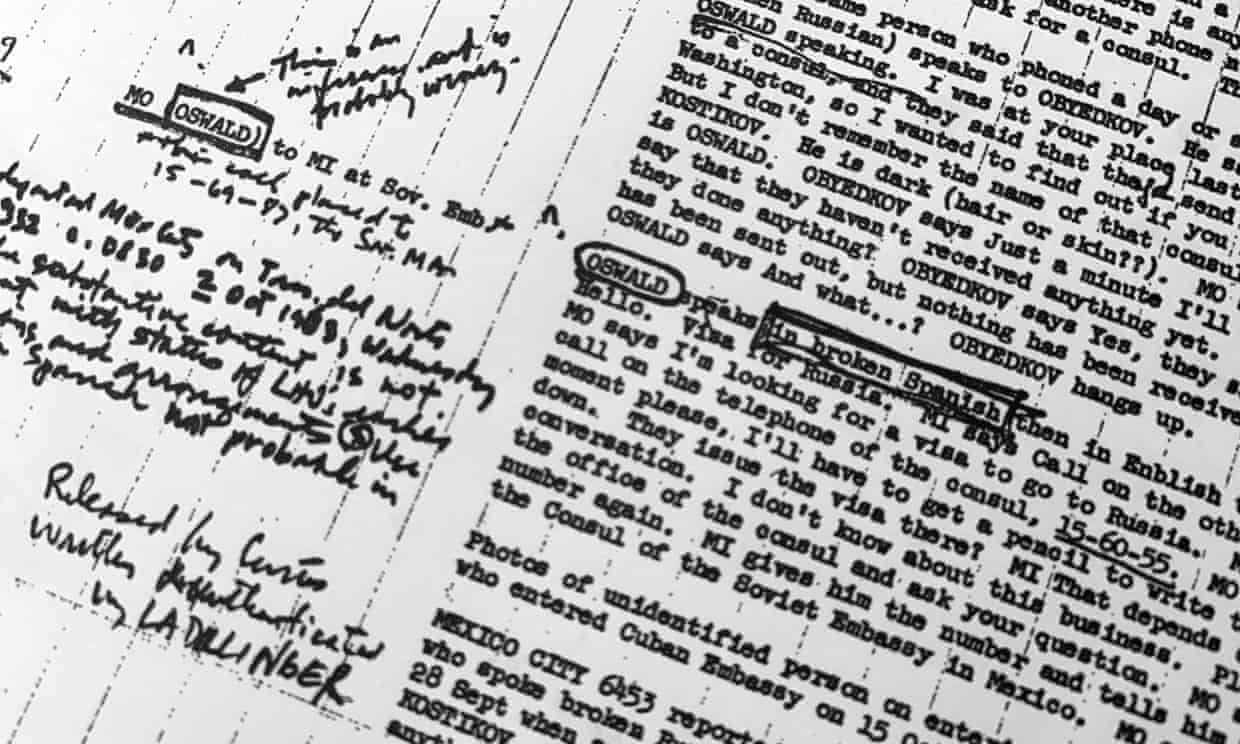 This is an
inference and is
probably wrong.
MO OSWALD) to MI at Sov. Emb
placed to
15-69-87, The Sov. MA
2 Oct 1963, Wednesday
substantive content is not
with status of
arrangements
Spanish not probable in
Released by
Written
by LA DILLINGER
ere is any
another phone n
ask for a consul. Th
ame person who phoned a day or s
en Russian) speaks to OBYEDKOV. He sa
OSWALD speaking. I was at your place last
to a consul, and they said that they'd send
Washington, so I wanted to find out if you
But I don't remember the name of that consul
KOSTIKOV. He is dark (hair or skin??). MO
is OSWALD. OBYEDKOV says Just a minute I'll
say that they haven't received anything yet.
they done anything? OBYEDKOV says Yes, they s
has been sent out, but nothing has been receive
OSWALD says And what...? OBYEDKOV hangs up.
OSWALD speaks in broken Spanish then in Enblish t
Hello. Visa for Russia. MI says Call on the oth
MO says I'm looking for a visa to go to Russia. M
call on the telephone of the consul, 15-60-55. MO
moment please, I'll have to get a pencil to write t
down. They issue the visa there? MI That depends
conversation. I don't know about this business. Pl
the office of the consul and ask your question. MO
number again. MI gives him the number and tells him
the Consul of the Soviet Embassy in Mexico. MO
Photos of unidentified person on enter
who entered Cuban Embassy on 15 O
MEXICO CITY 6453 report
who spoke broken
28 Sept when
KOSTIKOV
anyth